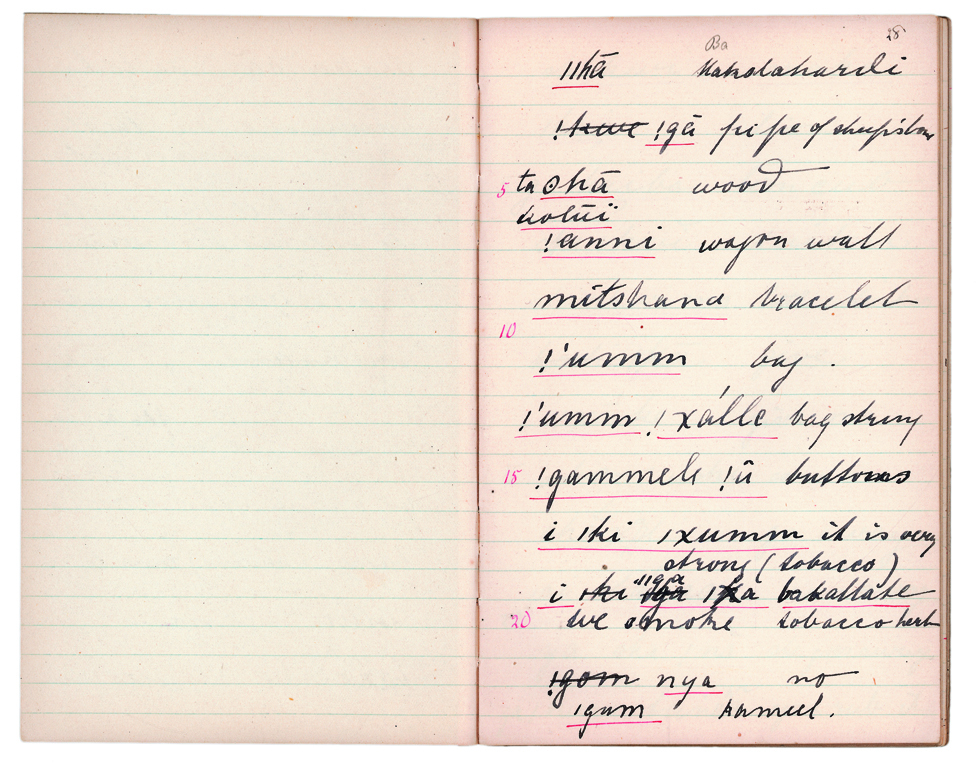 28
Ba
ǁhā Kakolahardi
!kwe !gā pipe of sheep's bone
5 ta ʘhā wood
kolūï
!anni wagon wall
mitshana bracelet
10
!'umm bag .
!'umm ǀxálle bag string
15 !gammele !ū buttons
i ǀki ǀxumm it is very
strong (tobacco)
ǁga
i ǀki ǀka bakallate
20 we smoke tobacco herb
!gom nya no
ǀgum kameel.